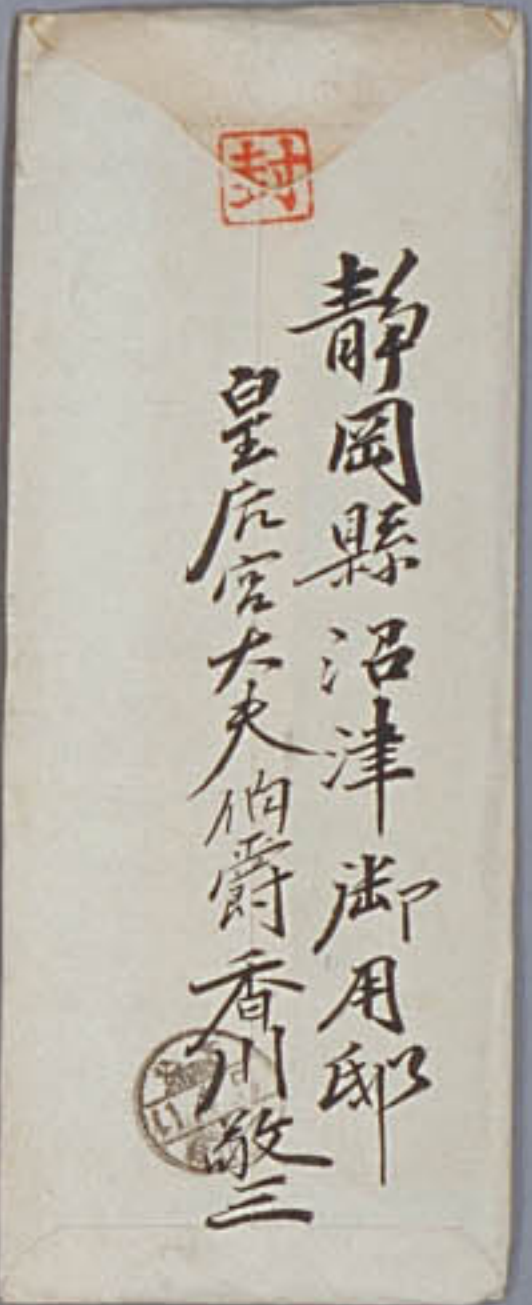 封
靜岡縣沼津御用邸
皇后宮大夫伯爵香川敬三